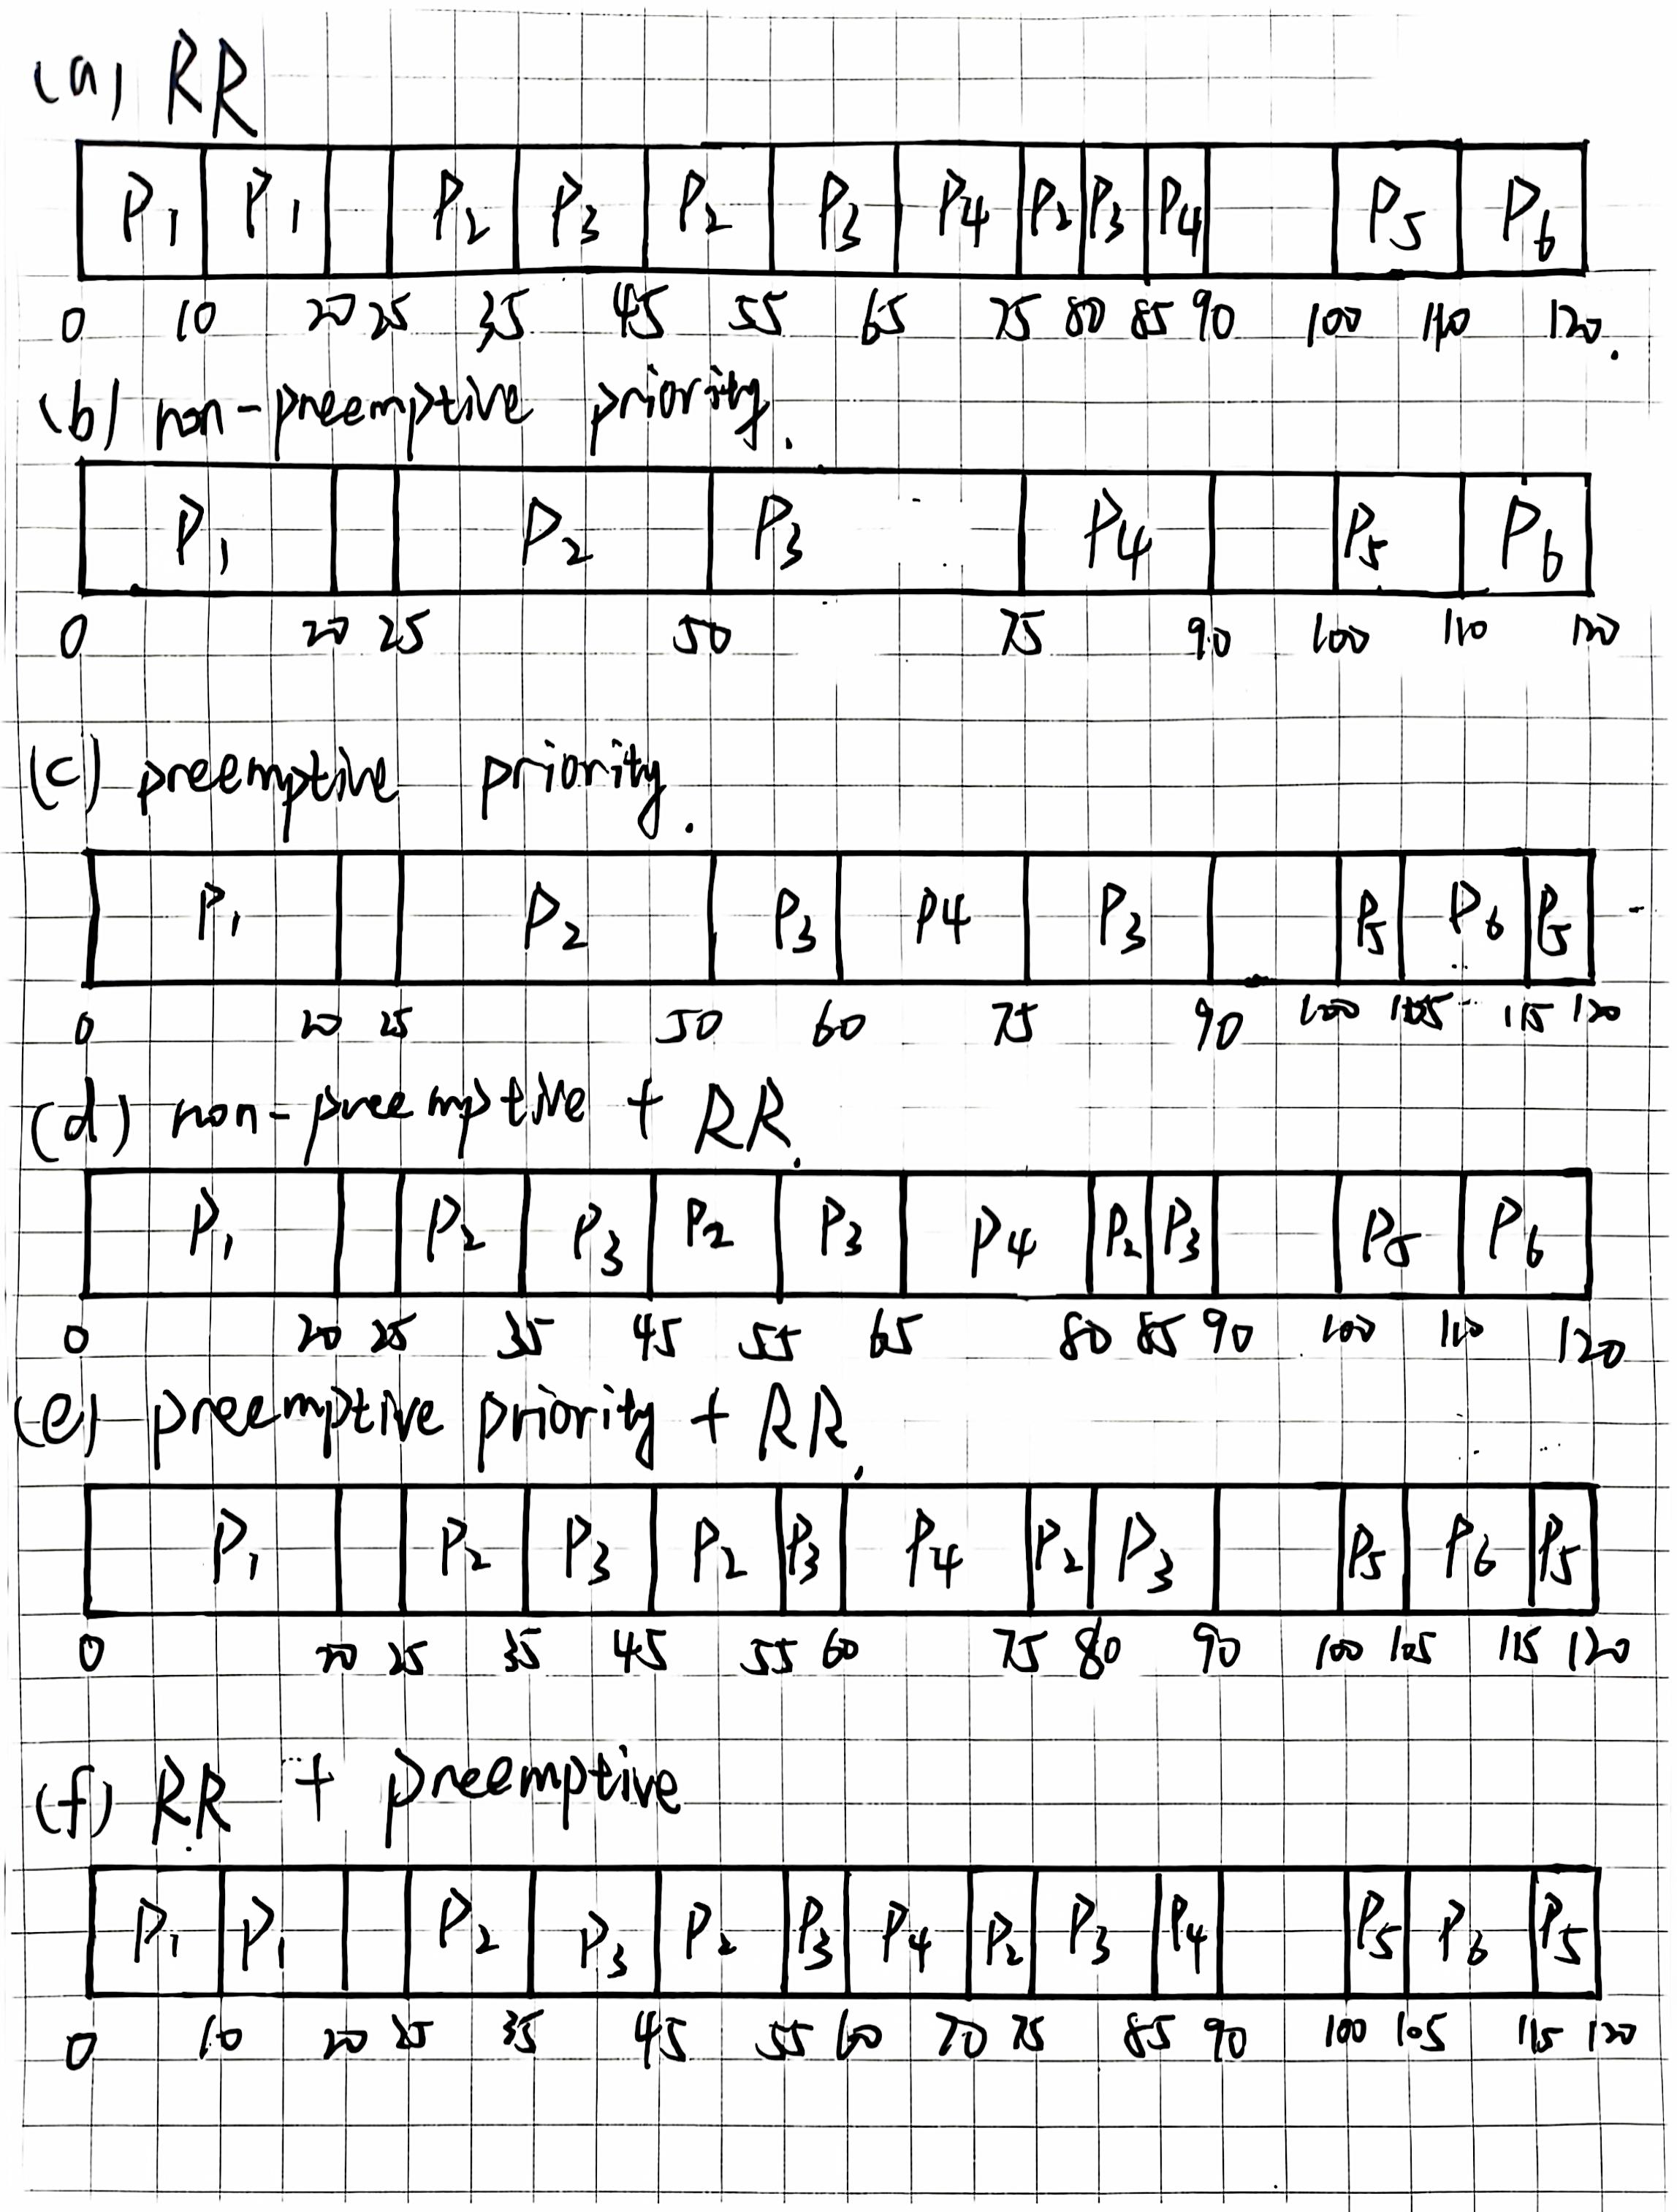 (a) RR
P1 P1 P2 P3 P2 P3 P4 P2 P3 P4 P5 P6
0 10 20 25 35 45 55 65 75 80 85 90 100 110 120.
(b) non-preemptive priority.
P1 P2 P3 P4 P5 P6
0 20 25 50 75 90 100 110 120
(c) preemptive priority.
P1 P2 P3 P4 P3 P5 P6 P5
0 20 25 50 60 75 90 100 105 115 120
(d) non-preemptive + RR.
P1 P2 P3 P2 P3 P4 P2 P3 P5 P6
0 20 25 35 45 55 65 80 85 90 100 110 120
(e) preemptive priority + RR.
P1 P2 P3 P2 P3 P4 P2 P3 P5 P6 P5
0 20 25 35 45 55 60 75 80 90 100 105 115 120
(f) RR + preemptive
P1 P1 P2 P3 P2 P3 P4 P2 P3 P4 P5 P6 P5
0 10 20 25 35 45 55 60 70 75 85 90 100 105 115 120